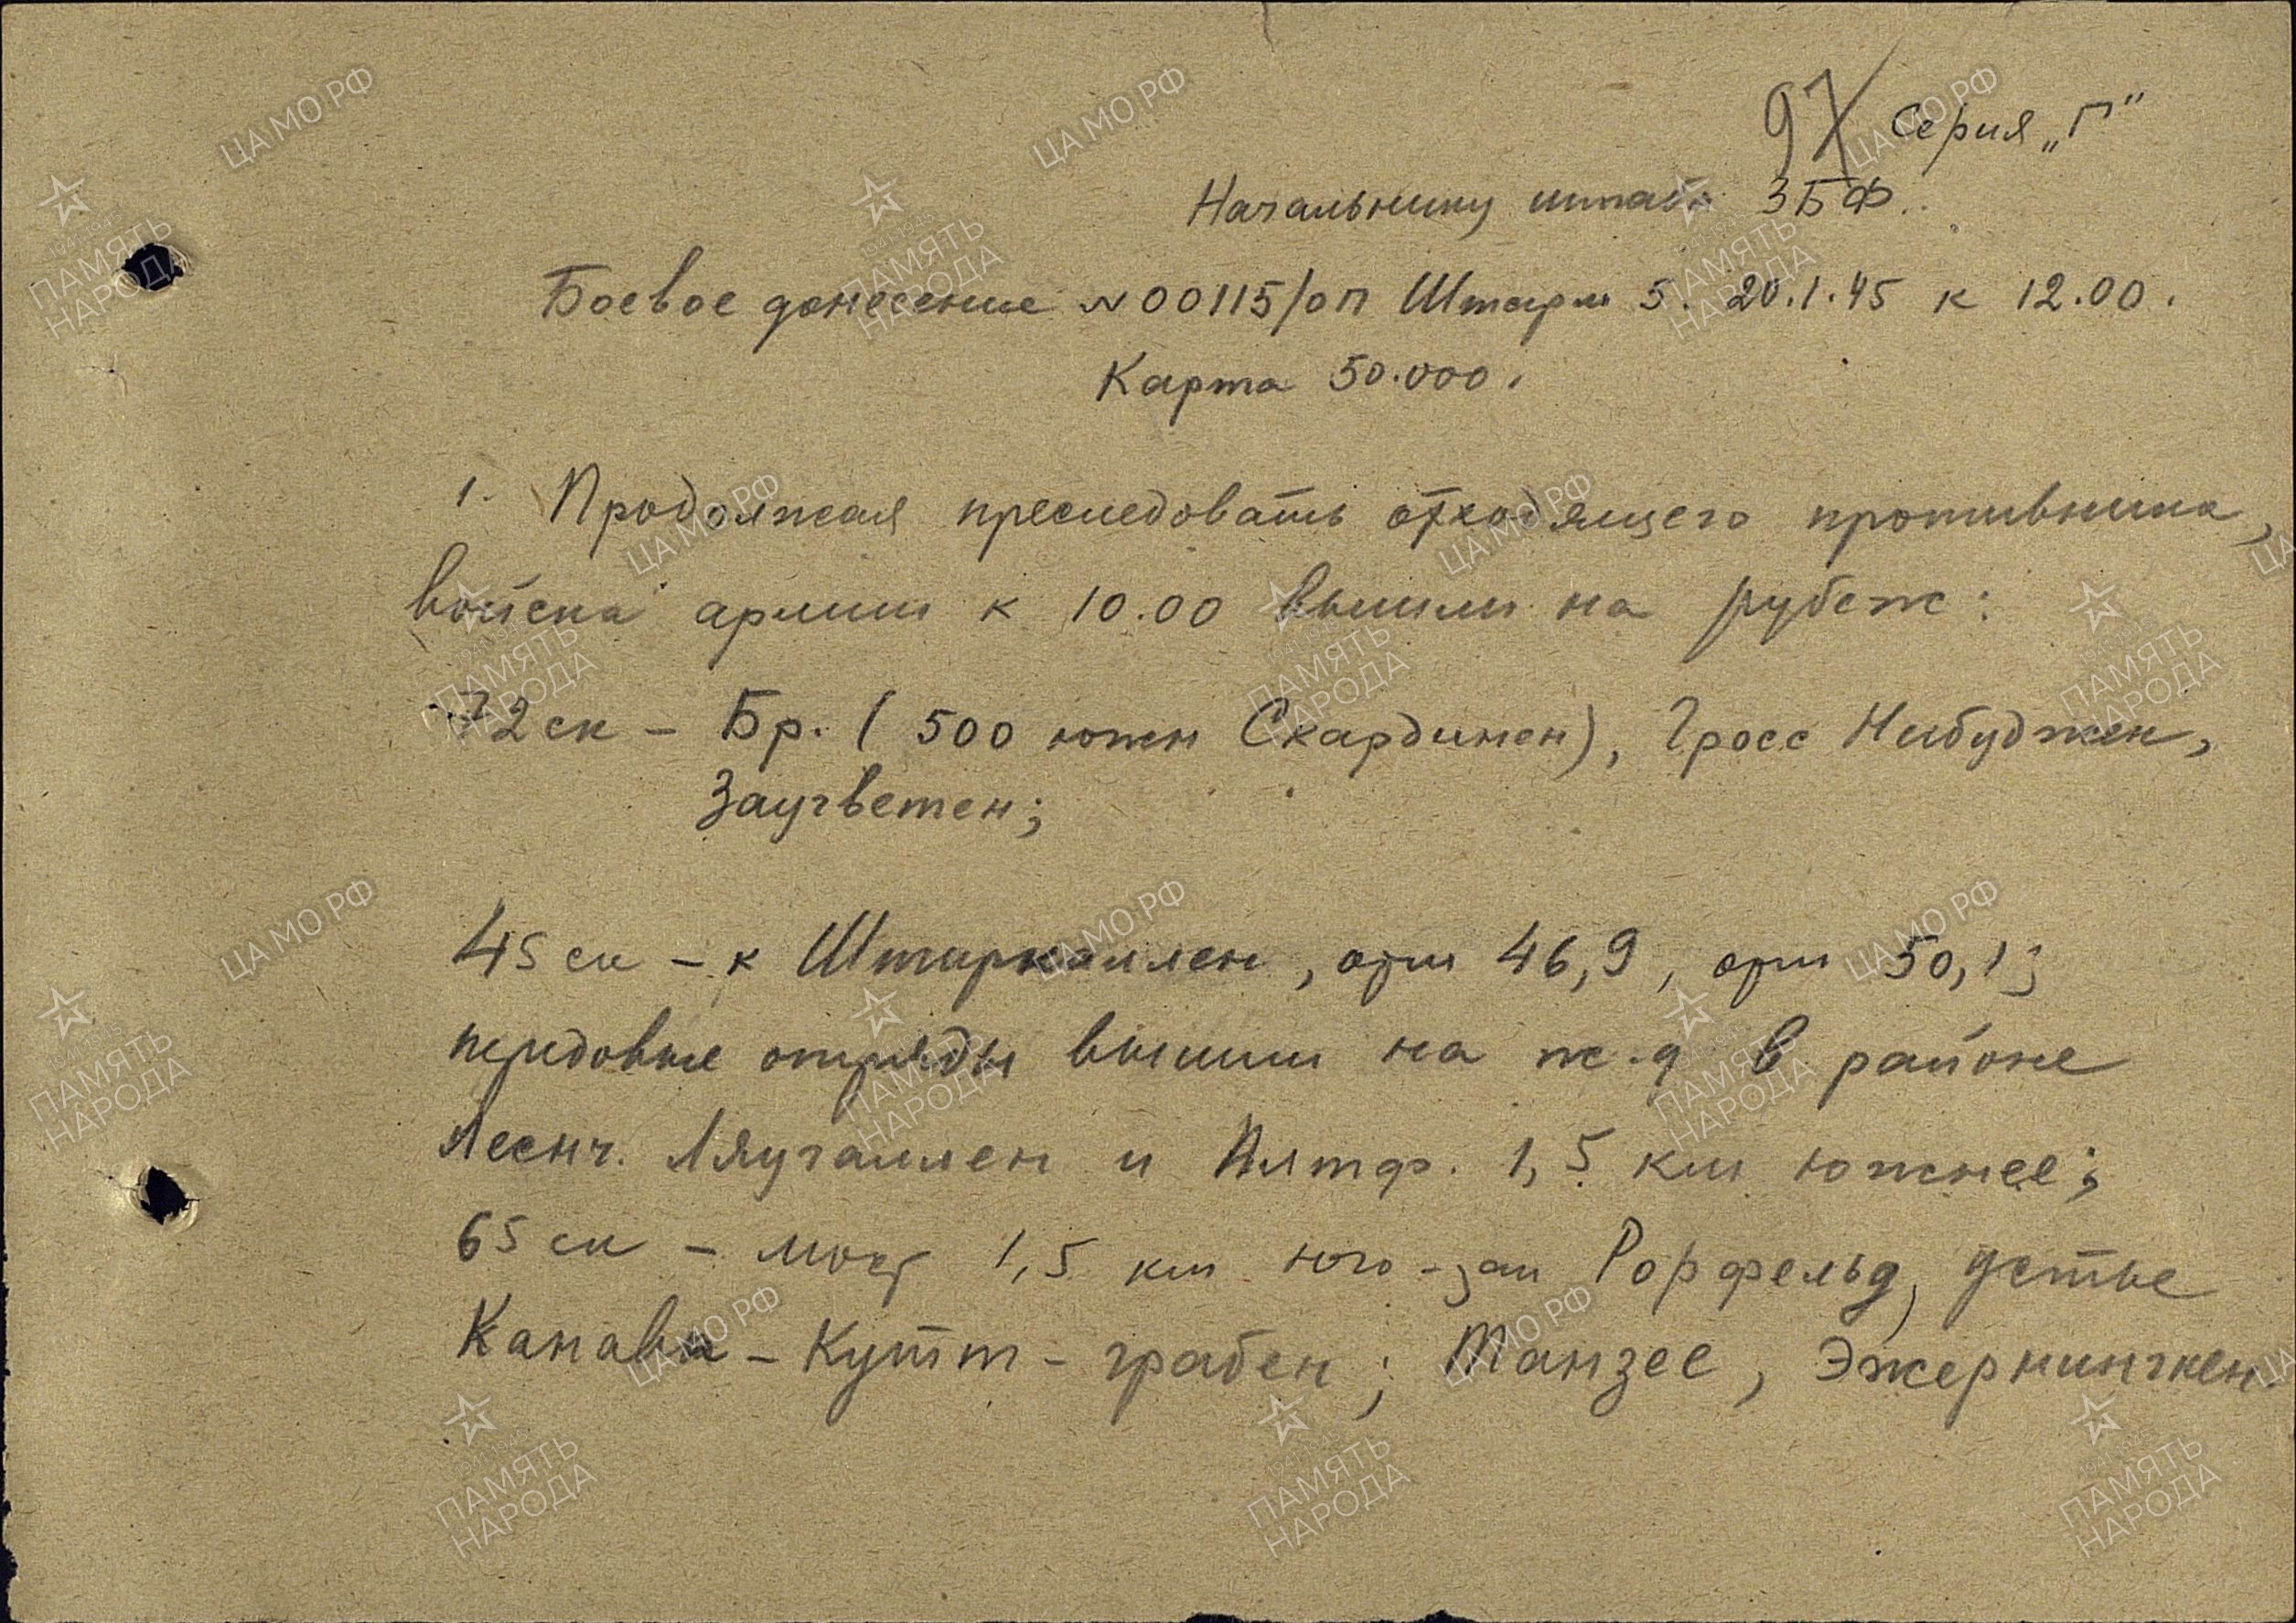 97 Серия „Г"
Начальнику штаба 3БФ.
Боевое донесение №00115/оп Штарм 5. 20.1.45 к 12.00.
Карта 50.000.
1. Продолжая преследовать отходящего противника,
войска армии к 10.00 вышли на рубеж:
72 ск – Бр. (500 южн Скардинен), Гросс Нибуджен,
Заугветен;
45 ск – к Штаркаллен, отм 46,9, отм 50,1;
передовые отряды вышли на ж.д в районе
Леснч. Ляугаллен и Плтф. 1,5 км южнее;
65 ск – мост 1,5 км юго-зап Рорфельд, устье
Канава – Кутт – грабен; Танзее, Эжернингкен.